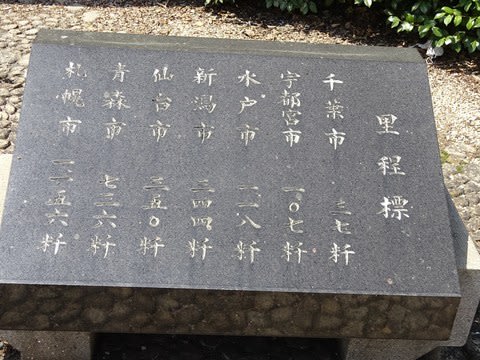 里程標
千葉市 三七粁
宇都宮市 一〇七粁
水戸市 一一八粁
新潟市 三四四粁
仙台市 三五〇粁
青森市 七三六粁
札幌市 一一五六粁